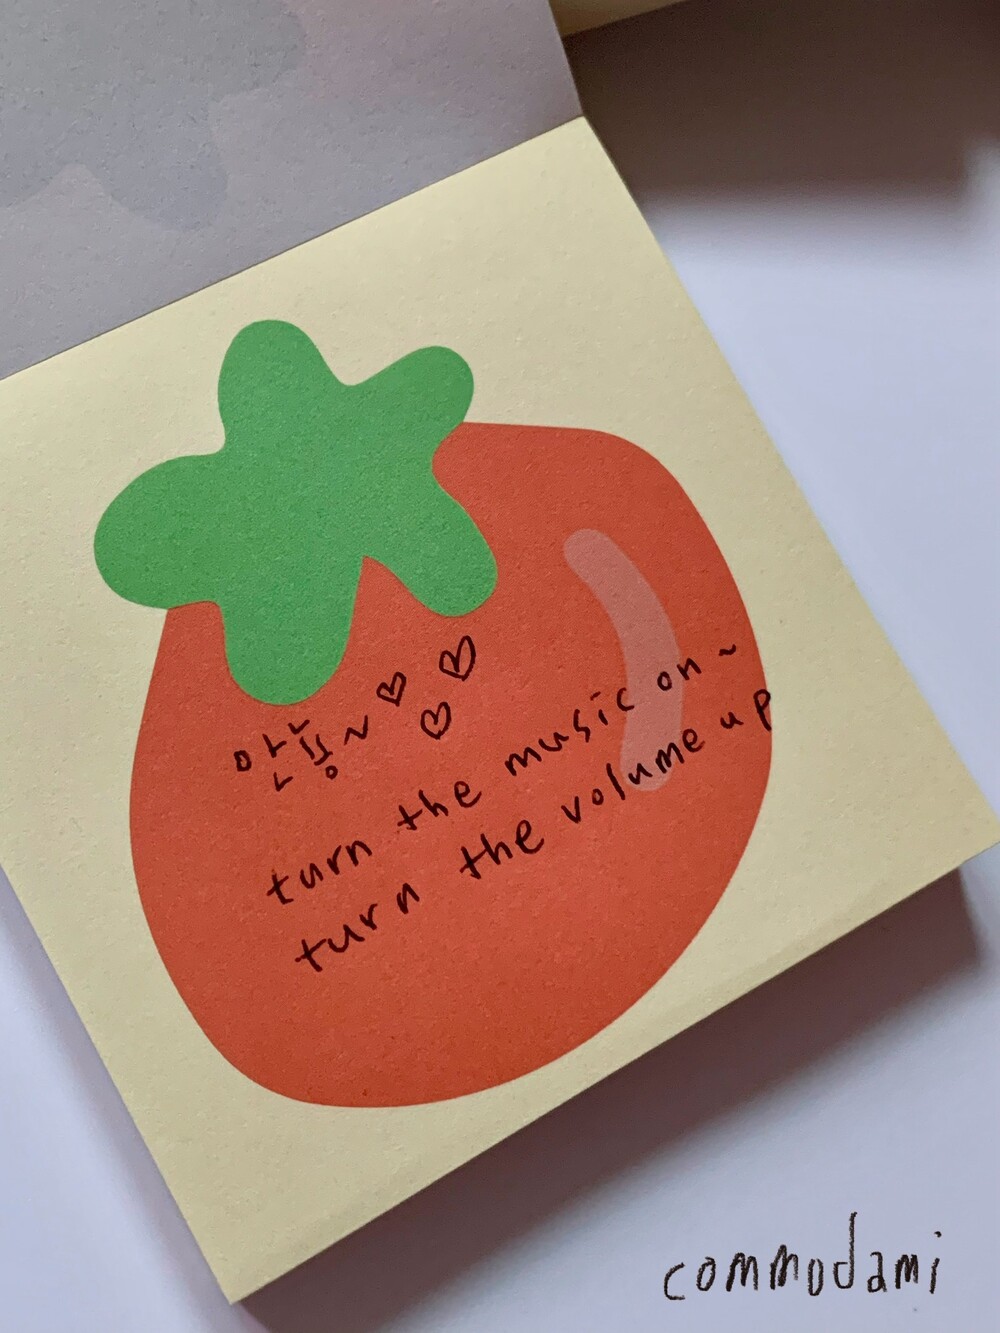 안뇽~♡♡♡
turn the music on ~
turn the volume up
commodami